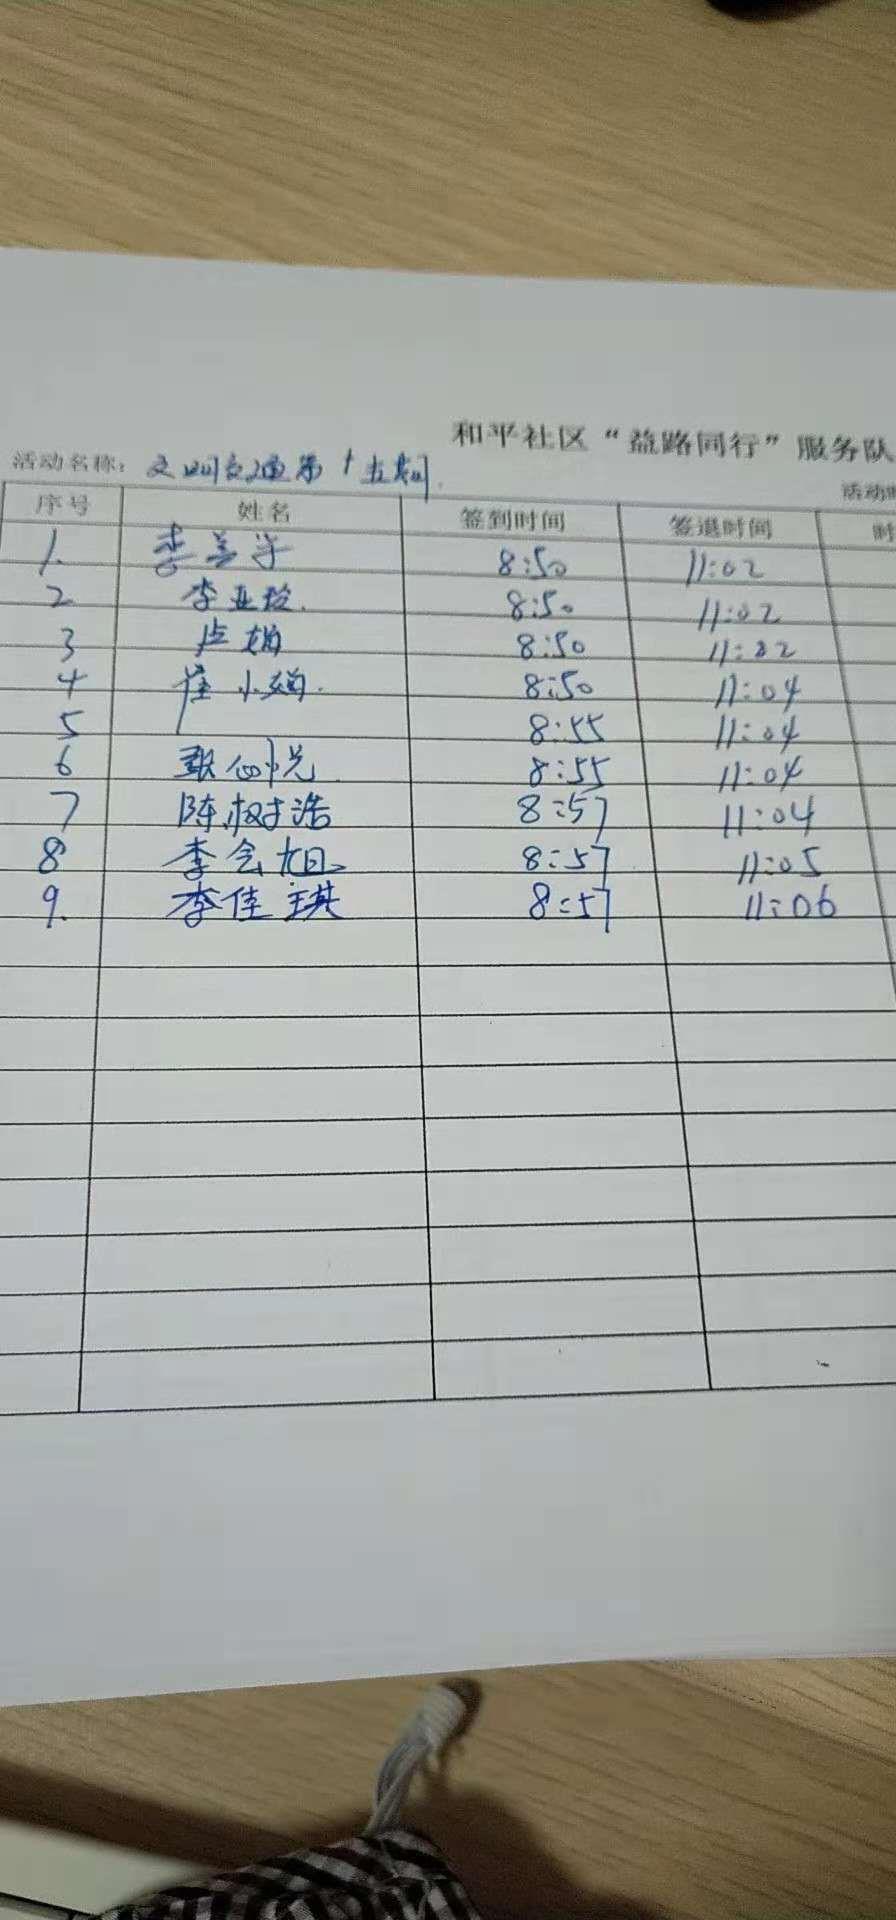 和平社区“益路同行”服务队
活动名称：文明交通第十五期
活动时
序号 姓名 签到时间 签退时间 时
1. 李善学 8:50 11:02
2 李亚玲. 8:50 11:02
3 卢娟 8:50 11:02
4 崔小娟. 8:50 11:04
5 8:55 11:04
6 8:55 11:04
7 陈树浩 8:57 11:04
8 李会旭 8:57 11:05
9. 李佳琪 8:57 11:06